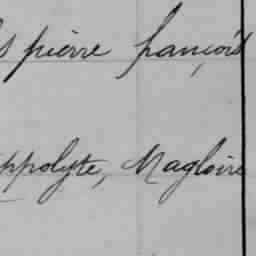 s pierre françois
ppolyte, Magloire